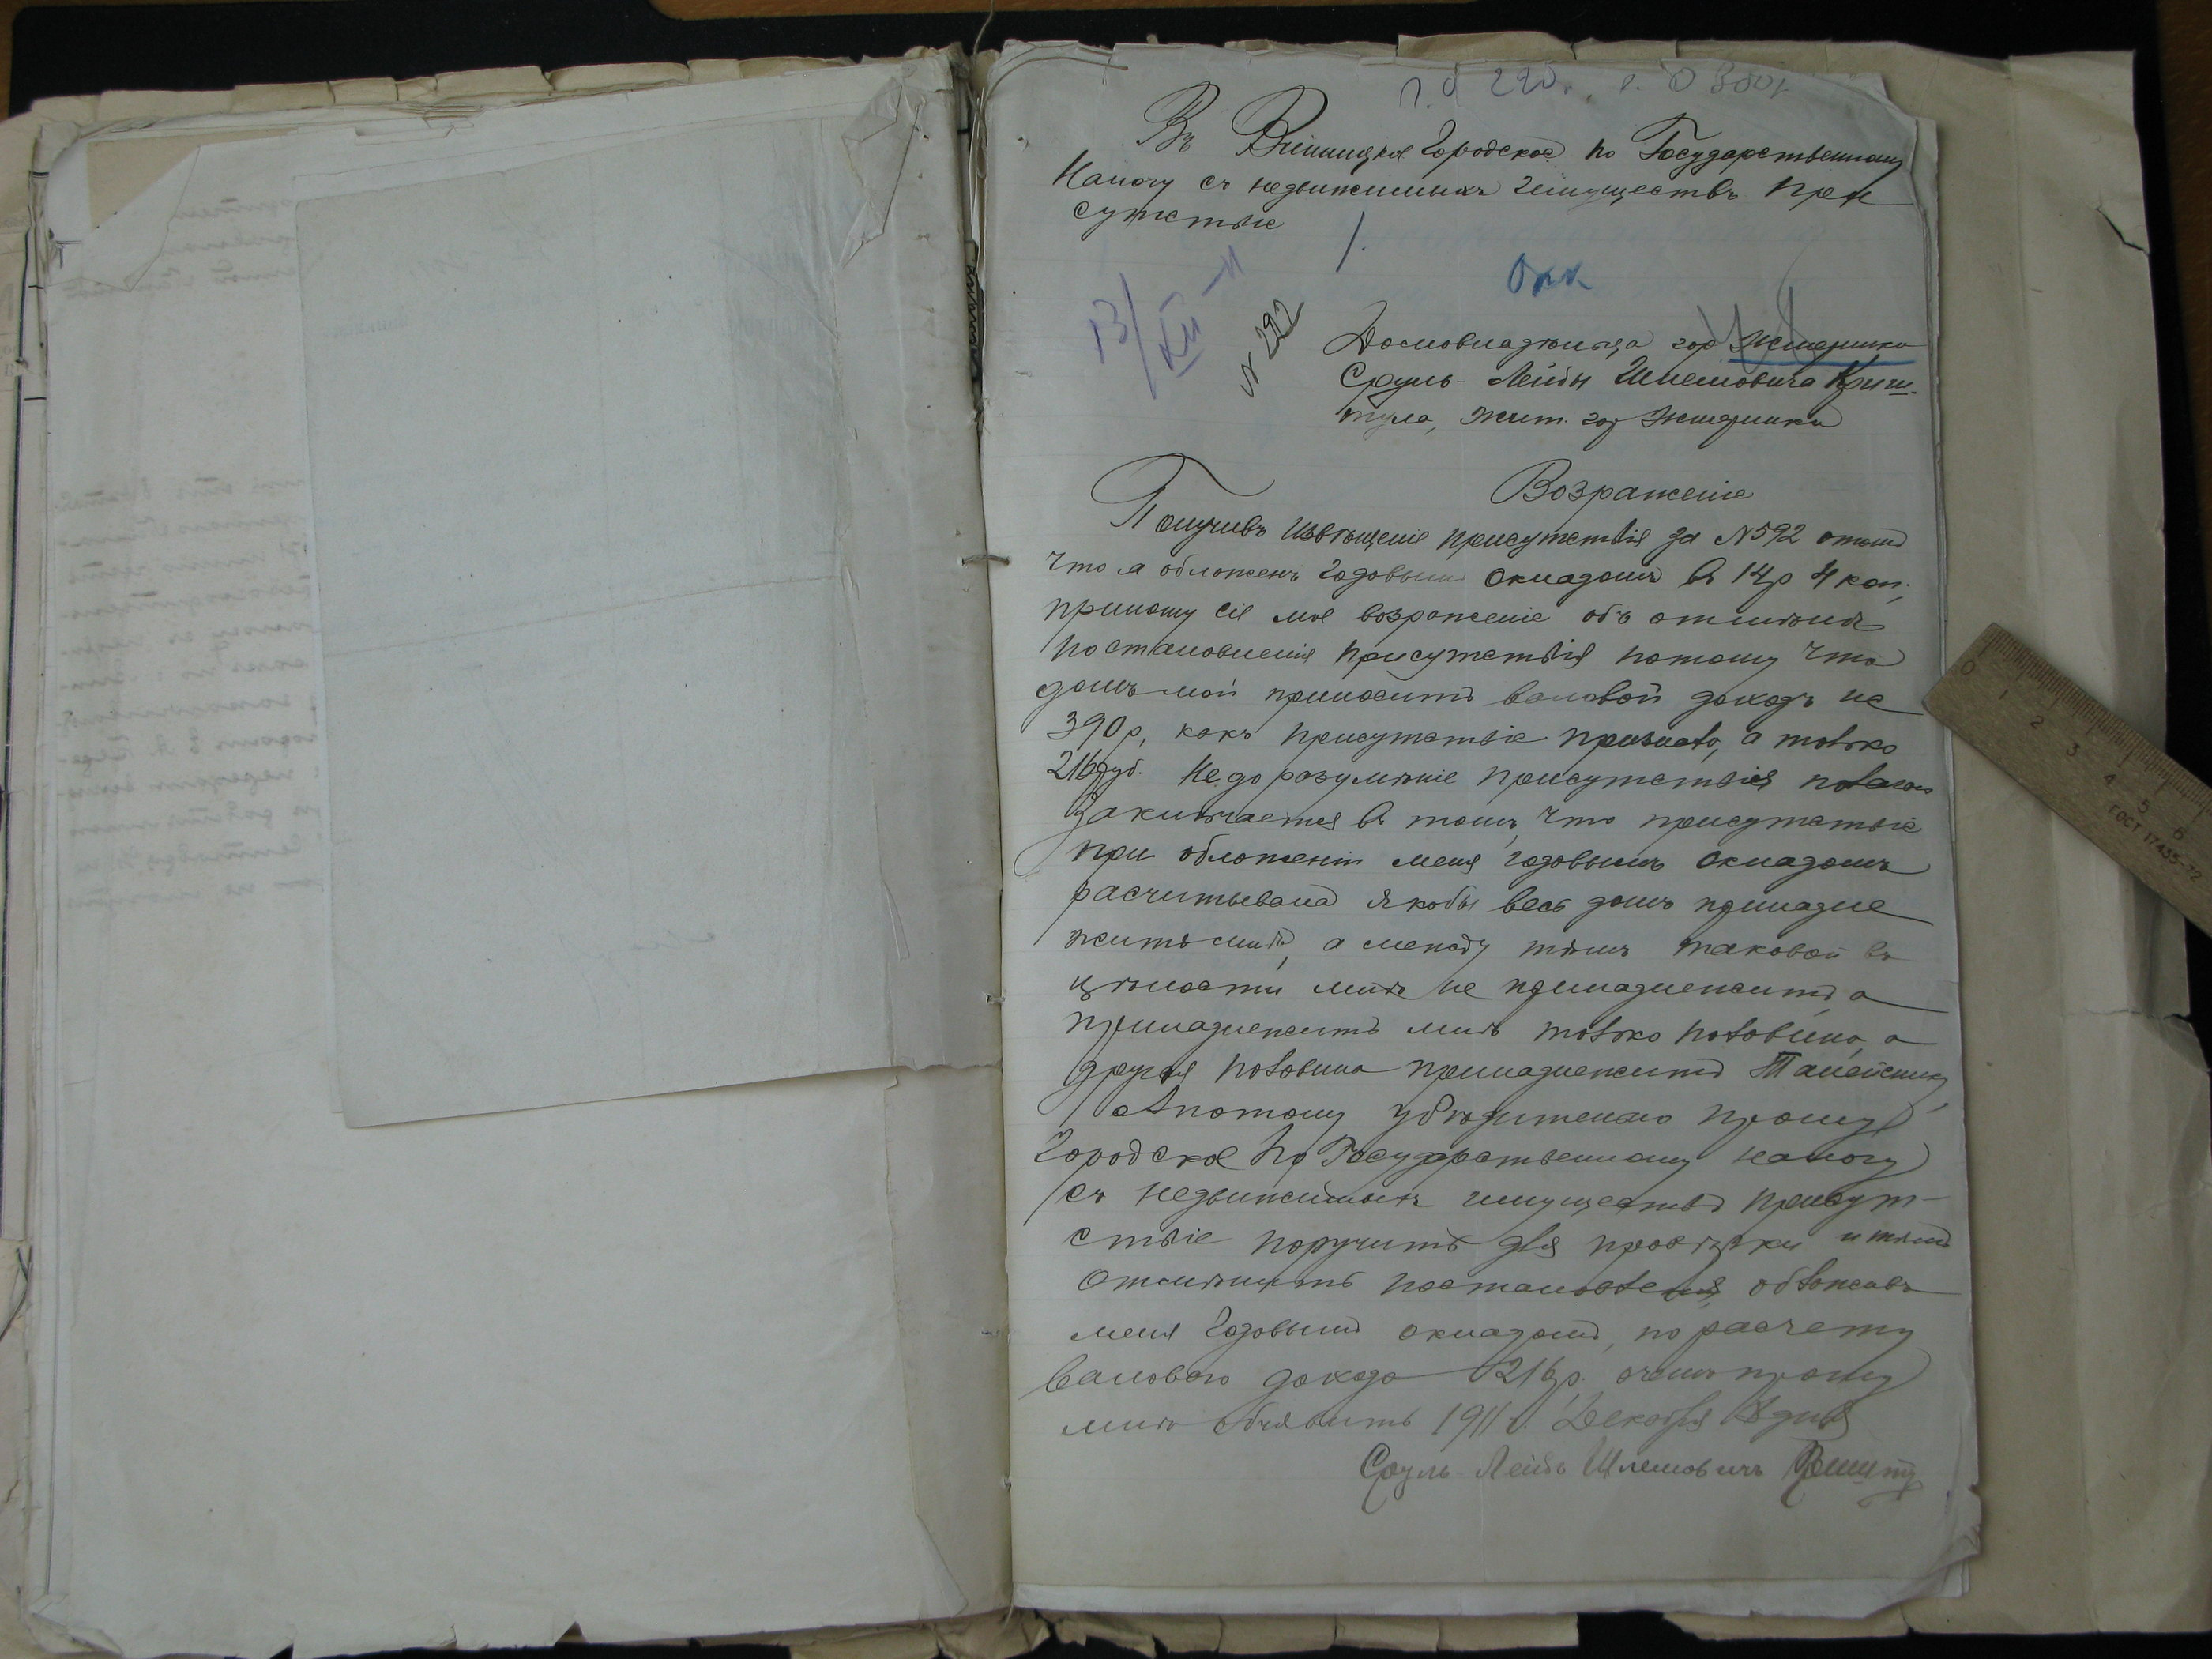 Въ Винницкое Городское по Государственному
Налогу съ недвижимыхъ имуществъ При
сутствіе
1.
13/XII-11
№ 292
Домовладельца гор Жмеринки
Сруль-Лейбы Шлемовича Криш-
тула, жит. гор Жмеринки
Возраженіе
Получивъ извѣщеніе присутствія за №592 о томъ
что я обложенъ годовымъ окладомъ въ 14р 4 коп.,
приношу сіе мое возраженіе объ отмѣнѣ
постановленія присутствія потому что
домъ мой приноситъ валовой доходъ не
390р, какъ присутствіе признало, а только
216 руб. Недоразумѣніе присутствія полагаю
заключается въ томъ, что присутствіе
при обложеніи меня годовымъ окладомъ
расчитывала якобы весь домъ принадле
житъ мнѣ, а между тѣмъ таковой въ
цѣлости мнѣ не принадлежитъ, а
принадлежитъ мнѣ только половина, а
другая половина принадлежитъ
А потому убѣдительно прошу
Городское по Государственному налогу
съ недвижимыхъ имуществъ присут-
ствіе поручить для провѣрки и тѣмъ
отмѣнить постановленія, обложивъ
меня годовымъ окладомъ, по расчету
валового дохода 216р. о чемъ прошу
мнѣ объявить 1911 г. Декабря дня
Сруль-Лейбъ Шлемовичъ
ГОСТ 17435-72
0 1 2 3 4 5 6